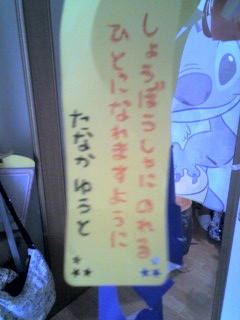 しょうぼうしゃに のれる
ひとになれますように
たなか ゆうと